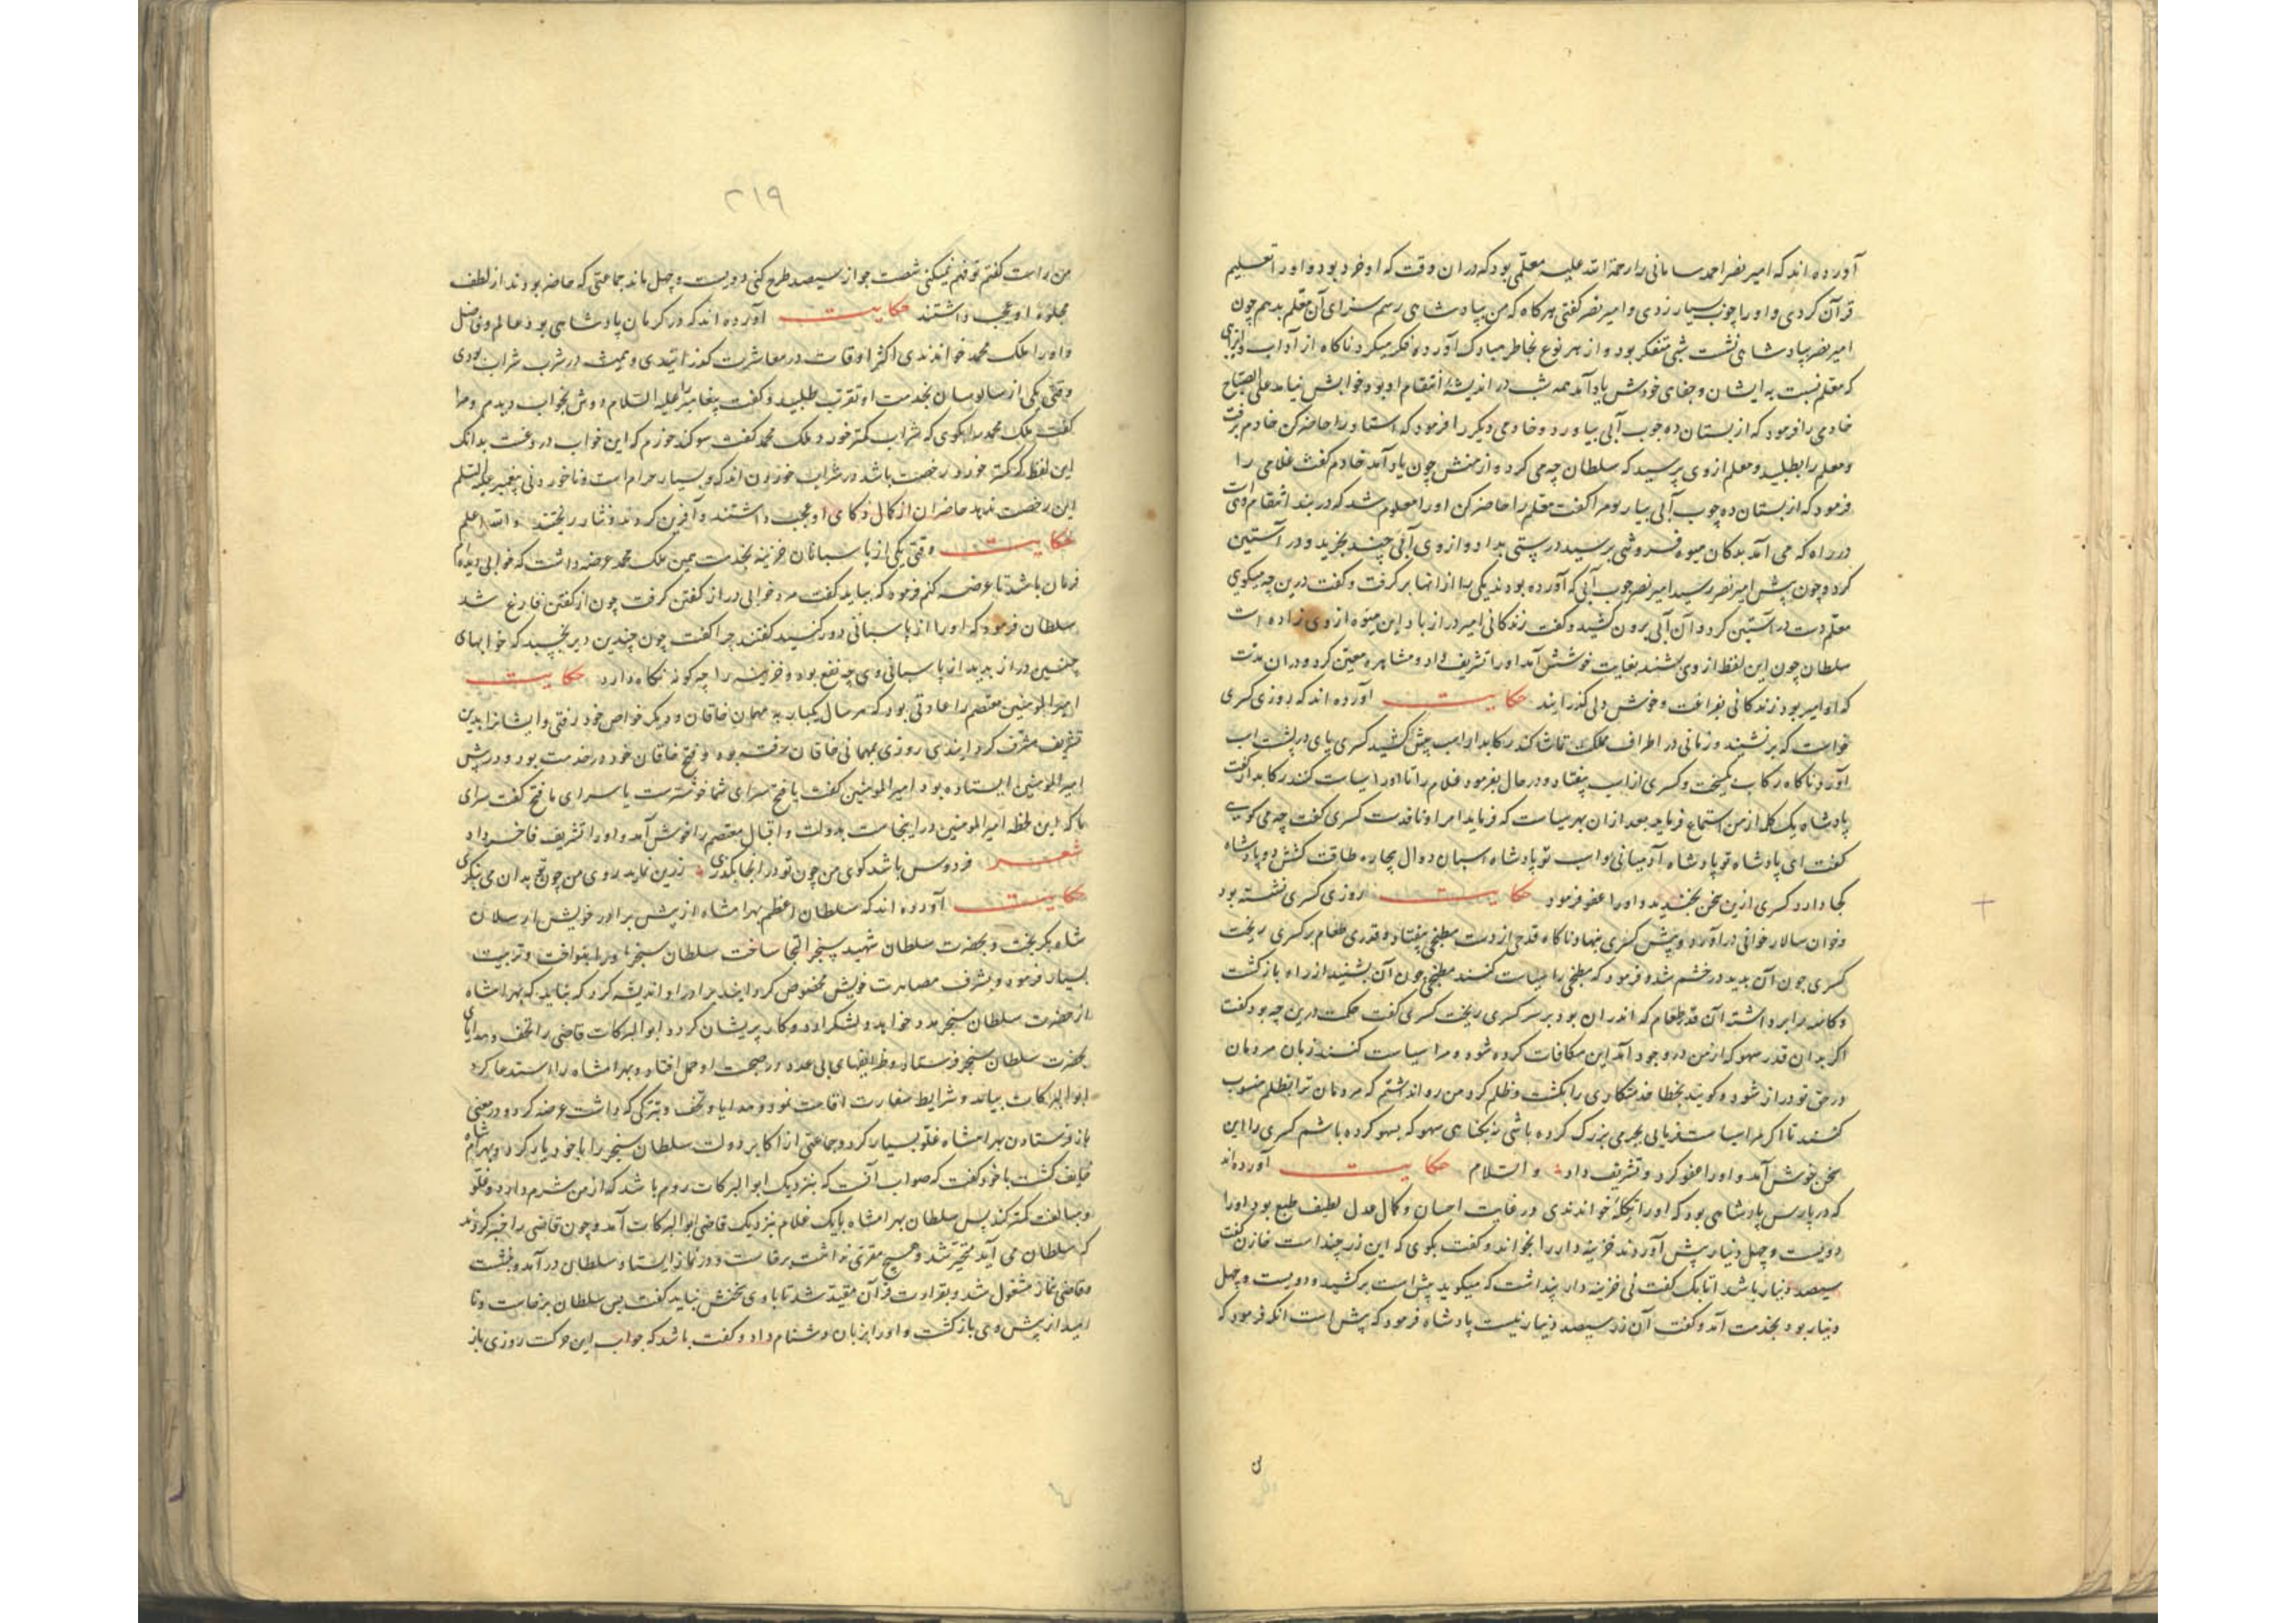 آورده اند که امیر نصر احمد سامانی را رحمة الله علیه معلمی بود که دران وقت که او خرد بود و او را تعلیم
قرآن کردی و او را چوب بسیار زدی و امیر نصر گفتی هرگاه که من بپادشاهی رسم سزای آن معلم بدهم چون
امیر نصر بپادشاهی نشست شبی متفکر بود و از هر نوع بخاطر مبارک آورد و فکر میکرد ناگاه از آداب
که معلم نسبت به ایشان و جفای خودش یاد آمد همه شب در اندیشۀ انتقام او بود خوابش نیامد علی الصباح
خادمی را فرمود که از بستان ده چوب آبی بیاورد و خادمی دیگر را فرمود که استاد را حاضر کن خادم برفت
و معلم را بطلبید و معلم از وی پرسید که سلطان چه می کرد و از منش چون یاد آمد خادم گفت غلامی را
فرمود که از بستان ده چوب آبی بیار و مرا گفت معلم را حاضر کن او را معلوم شد که در بند انتقام وی است
در راه که می آمد بدکان میوه فروشی برسید درستی بداد و از وی آبی چند بخرید و در آستین
کرد و چون پیش امیر نصر رسید امیر نصر چوب آبی که آورده بودند یکی را از انها برگرفت و گفت درین چه میگویی
معلم دست در آستین کرد و آن آبی برون کشید و گفت زندگانی امیر دراز باد این میوه از وی زاده است
سلطان چون این لفظ از وی بشنید بغایت خوشش آمد او را تشریف داد و مشاهره معین کرد و دران مدت
که او امیر بود زندگانی بفراغت و خوش دلی گذرانید حکایت آورده اند که روزی کسری
خواست که برنشیند و زمانی در اطراف مملکت تماشا کند رکابدار اسب پیش کشید کسری پای در پشت اسب
آورد ناگاه رکاب بگسیخت و کسری از اسب بیفتاد و در حال بفرمود غلام را تا او را سیاست کنند رکابدار گفت
پادشاه یک کلمه از من استماع فرماید بعد ازان بهر سیاست که فرماید امر او نافذست کسری گفت چه می گویی
گفت ای پادشاه تو پادشاه آدمیانی و اسب تو پادشاه اسبان دوال بیچاره طاقت کشش دو پادشاه
کجا دارد کسری ازین سخن بخندید و او را عفو فرمود حکایت روزی کسری نشسته بود
و خوان سالار خوانی در آورد و پیش کسری بنهاد ناگاه قدح از دست مطبخی بیفتاد و قدری طعام بر کسری ریخت
کسری چون آن بدید در خشم شد و فرمود که مطبخی را سیاست کنند مطبخی چون آن بشنید از راه بازگشت
و کاسه را برداشته آن قدر طعام که اندران بود بر سر کسری ریخت کسری گفت حکمت درین چه بود گفت
اگر بدان قدر سهو که از من در وجود آمد این مکافات کرده شود و مرا سیاست کنند زبان مردمان
در حق تو دراز شود و گویند بخطا خدمتکاری را بکشت و ظلم کرد من روا نداشتم که مردمان ترا بظلم منسوب
کنند تا اگر مرا سیاست فرمایی بجرمی بزرگ کرده باشی نه بگناهی سهو که بسهو کرده باشم کسری را این
سخن خوش آمد و او را عفو کرد و تشریف داد و السلام حکایت آورده اند
که در پارس پادشاهی بود که او را خواندندی در غایت احسان و کمال عدل لطیف طبع بود او را
دویست و چهل دینار پیش آوردند خزینه دار را بخواند و گفت بگوی که این زر چند است خازن گفت
سیصد دینار باشد اتابک گفت نی خزینه دار پنداشت که میگوید بیش است برکشید و دویست و چهل
دینار بود بخدمت آمد و گفت آن زر سیصد دینار نیست پادشاه فرمود که بیش است انکه فرمود که
٢١٩
من راست گفتم تو فهم نمیکنی شصت چو از سیصد طرح کنی دویست و چهل ماند جماعتی که حاضر بودند از لطف
او عجب داشتند حکایت آورده اند که در کرمان پادشاهی بود عالم و فاضل
و او را ملک محمد خواندندی اکثر اوقات در معاشرت گذرانیدی و همیشه در شرب شراب بودی
وقتی یکی از سالوسان بخدمت او تقرب طلبید و گفت پیغامبر را علیه السلام دوش بخواب دیدم و مرا
گفت ملک محمد را بگوی که شراب کمتر خورد ملک محمد گفت سوگند خورم که این خواب دروغست بدانک
این لفظ که کمتر خورد رخصت باشد در شراب خوردن اندک و بسیار حرام است و ناخوردنی پیغمبر علیه السلم
این رخصت ندهد حاضران از کمال ذکای او عجب داشتند و آفرین کردند و نثار ریختند والله اعلم
حکایت وقتی یکی از پاسبانان خزینه بخدمت همین ملک محمد عرضه داشت که خوابی دیده ام
فرمان باشد تا عرضه کنم فرمود که بباید گفت مرد خوابی دراز گفتن گرفت چون از گفتن فارغ شد
سلطان فرمود که او را از پاسبانی دور کنید گفتند چرا گفت چون چندین دیر بخسبد که خوابهای
چنین دراز بدید از پاسبانی وی چه نفع بود و خزینه را چه گونه نگاه دارد حکایت
امیر المومنین معتصم را عادتی بود که هر سال یکبار به مهمان خاقان و دیگر خواص خود رفتی و ایشانرا بدین
تشریف مشرف گردانیدی روزی بمهمانی خاقان رفته بود و فتح خاقان خود در خدمت بود و در پیش
امیر المومنین ایستاده بود امیر المومنین گفت یا فتح سرای شما خوشترست یا سرای ما فتح گفت سرای
ما که این لحظه امیر المومنین در اینجاست بدولت و اقبال معتصم را خوش آمد و او را تشریف فاخر داد
شعر فردوس باشد کوی من چون تو در انجا بگذری زرین نماید روی من چون تو بدان می بنگری
حکایت آورده اند که سلطان اعظم بهرامشاه از پیش برادر خویش ارسلان
شاه بگریخت و بحضرت سلطان شهید سنجر التجا ساخت سلطان سنجر او را بنواخت و تربیت
بسیار فرمود و بشرف مصاهرت خویش مخصوص گردانید برادر او اندیشه کرد که نباید که بهرامشاه
از حضرت سلطان سنجر مدد خواهد و لشکر آورد و کار پریشان گردد ابو البرکات قاضی را تحف و هدایای
بحضرت سلطان سنجر فرستاد و ظرایفهای بی عدد در صحبت او حمل افتاد و بهرامشاه را استدعا کرد
ابو البرکات بیامد و شرایط سفارت اقامت نمود و هدایا و تحف و تبرکی که داشت عرضه کرد و در معنی
باز فرستادن بهرامشاه غلو بسیار کرد و جماعتی از اکابر دولت سلطان سنجر را با خود یار کرد و بهرام شاه
خایف گشت با خود گفت که صواب آنست که بنزدیک ابو البرکات روم باشد که از من شرم دارد و غلو
و مبالغت کمتر کند پس سلطان بهرامشاه با یک غلام بنزدیک قاضی ابو البرکات آمد و چون قاضی را خبر کردند
که سلطان می آید متحیر شد و هیچ مفری نداشت برخاست و در نماز ایستاد سلطان در آمد و بنشست
و قاضی بنماز مشغول شد و بقراءت قرآن مقید شد تا با وی سخنش نباید گفت پس سلطان برخاست و نا
امید از پیش وی بازگشت و او را بزبان دشنام داد و گفت باشد که جواب این حرکت روزی باز